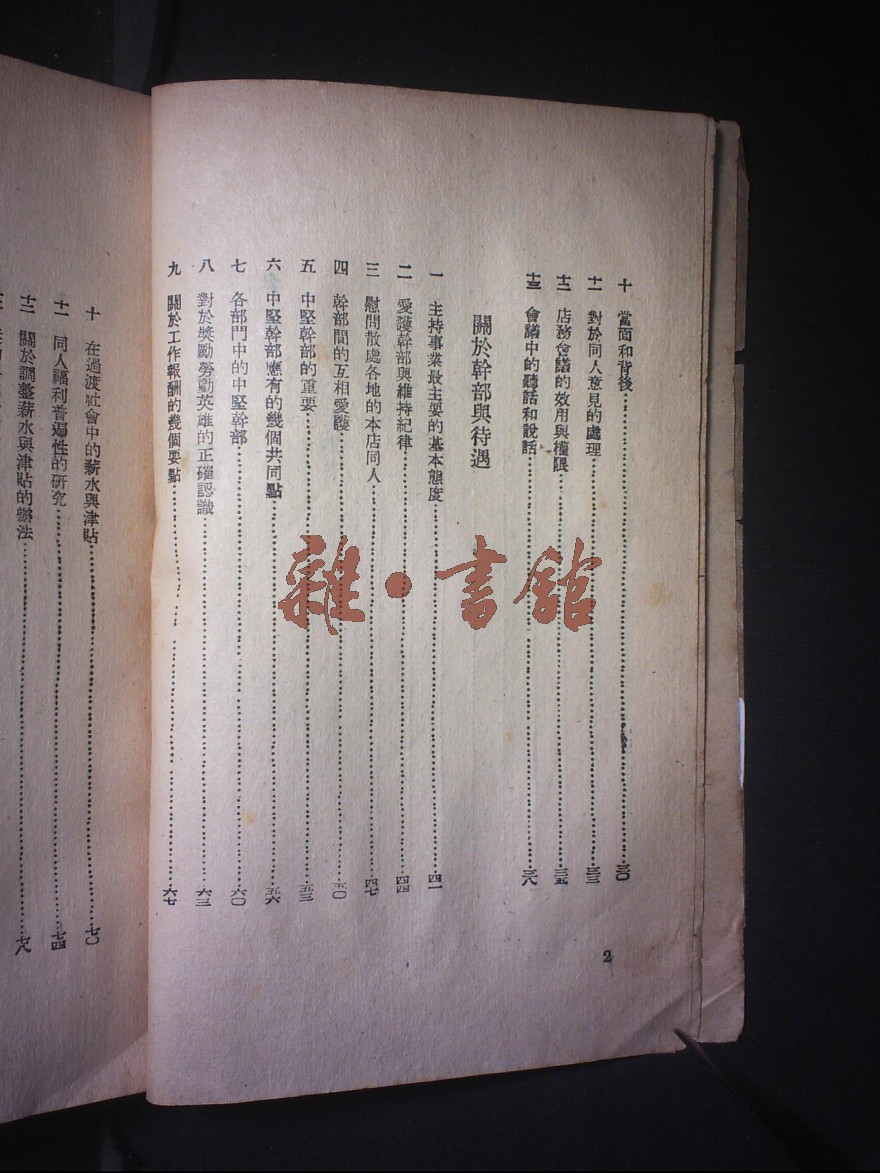 十 當面和背後……三〇
十一 對於同人意見的處理……三三
十二 店務會議的效用與權限……三五
十三 會議中的聽話和說話……三八
關於幹部與待遇
一 主持事業最主要的基本態度……四一
二 愛護幹部與維持紀律……四四
三 慰問散處各地的本店同人……四七
四 幹部間的互相愛護……五〇
五 中堅幹部的重要……五三
六 中堅幹部應有的幾個共同點……五六
七 各部門中的中堅幹部……六〇
八 對於獎勵勞動英雄的正確認識……六三
九 關於工作報酬的幾個要點……六七
2
十 在過渡社會中的薪水與津貼……七〇
十一 同人福利普遍性的研究……七四
十二 關於調整薪水與津貼的辦法……七八
雜·書館